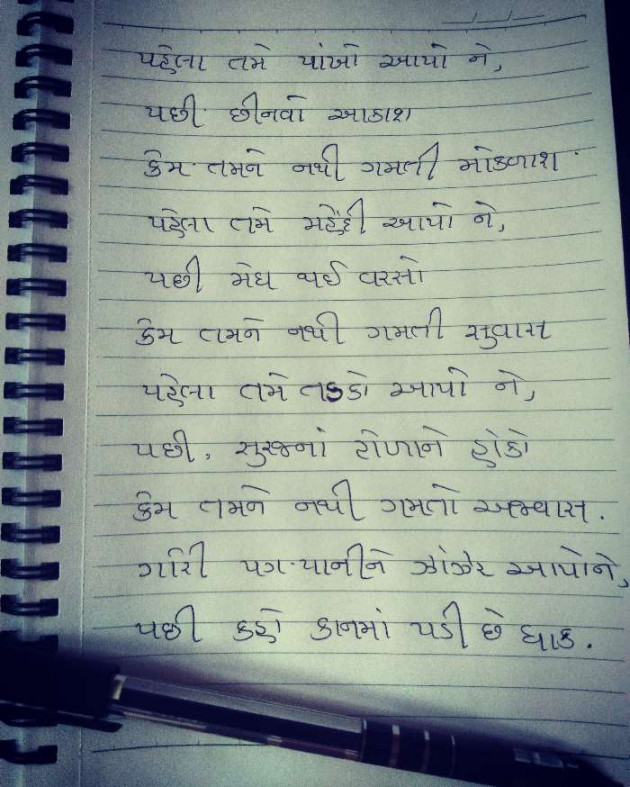 પહેલા તમે પાંખો આપો ને,
પછી છીનવો આકાશ
કેમ તમને નથી ગમતી મોકળાશ.
પહેલા તમે મહેંદી આપો ને,
પછી મેઘ થઈ વરસો
કેમ તમને નથી ગમતી સુવાસ
પહેલા તમે તડકો આપો ને,
પછી, સુરજનાં ટોળાને હોકો
કેમ તમને નથી ગમતો અજવાસ.
ગોરી પગ પાનીને ઝાંઝર આપોને,
પછી કહો કાનમાં પડી છે ધાક.